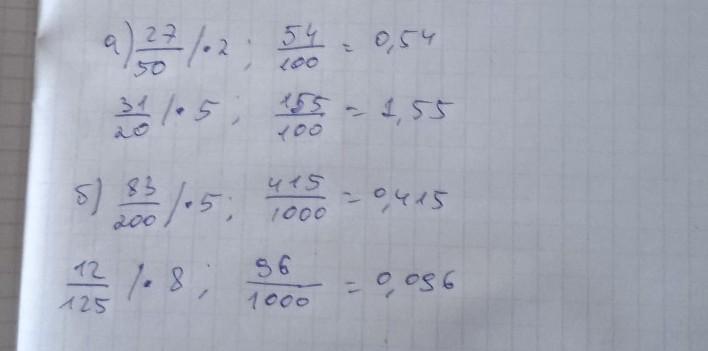 а) 27/50 /·2; 54/100 = 0,54
31/20 /·5; 155/100 = 1,55
б) 83/200 /·5; 415/1000 = 0,415
12/125 /·8; 96/1000 = 0,096